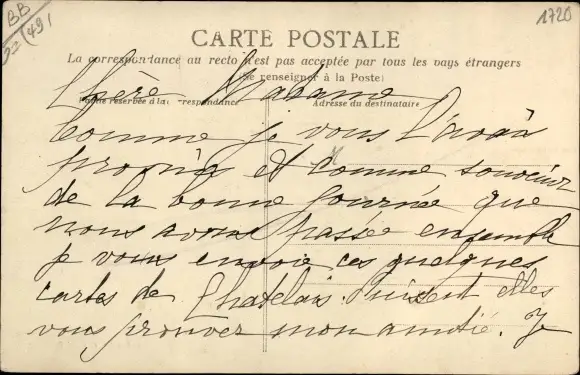 BB
(491
1720
CARTE POSTALE
La correspondance au recto n'est pas acceptée par tous les pays étrangers
(Se renseigner à la Poste)
Chère Madame
Partie réservée à la correspondance
Adresse du destinataire
Comme je vous l'avais
promis et comme souvenir
de la bonne journée que
nous avons passée ensemble
je vous envoie ces quelques
cartes de Chatelais. Puissent elles
vous prouver mon amitié. J